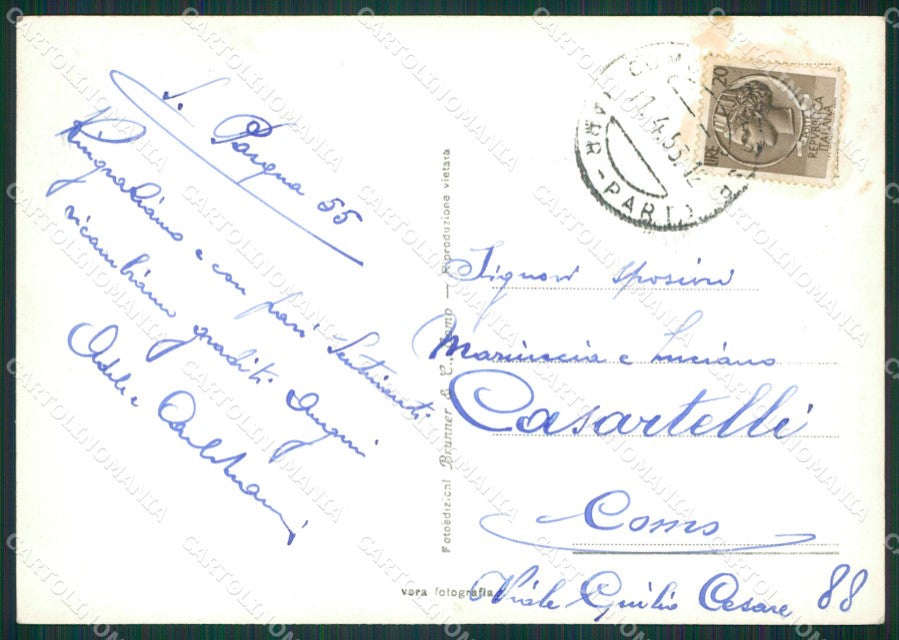 S. Pasqua 55
Ringraziamo e con pari Sentimenti
ricambiamo graditi Auguri
Adele e
Fotoedizioni Brunner & C. Como — Riproduzione vietata
vera fotografia
COMO
11.4.55.12
ARR.-PART
LIRE 20
REPVBBLICA
ITALIANA
Signori sposini
Mariuccia e Luciano
Casartelli
Como
Viale Giulio Cesare 88
CARTOLINOMANIA